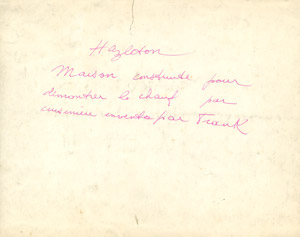 Hazelton
Maison construite pour
démontrer le chauf par
cuisinière inventé par Frank